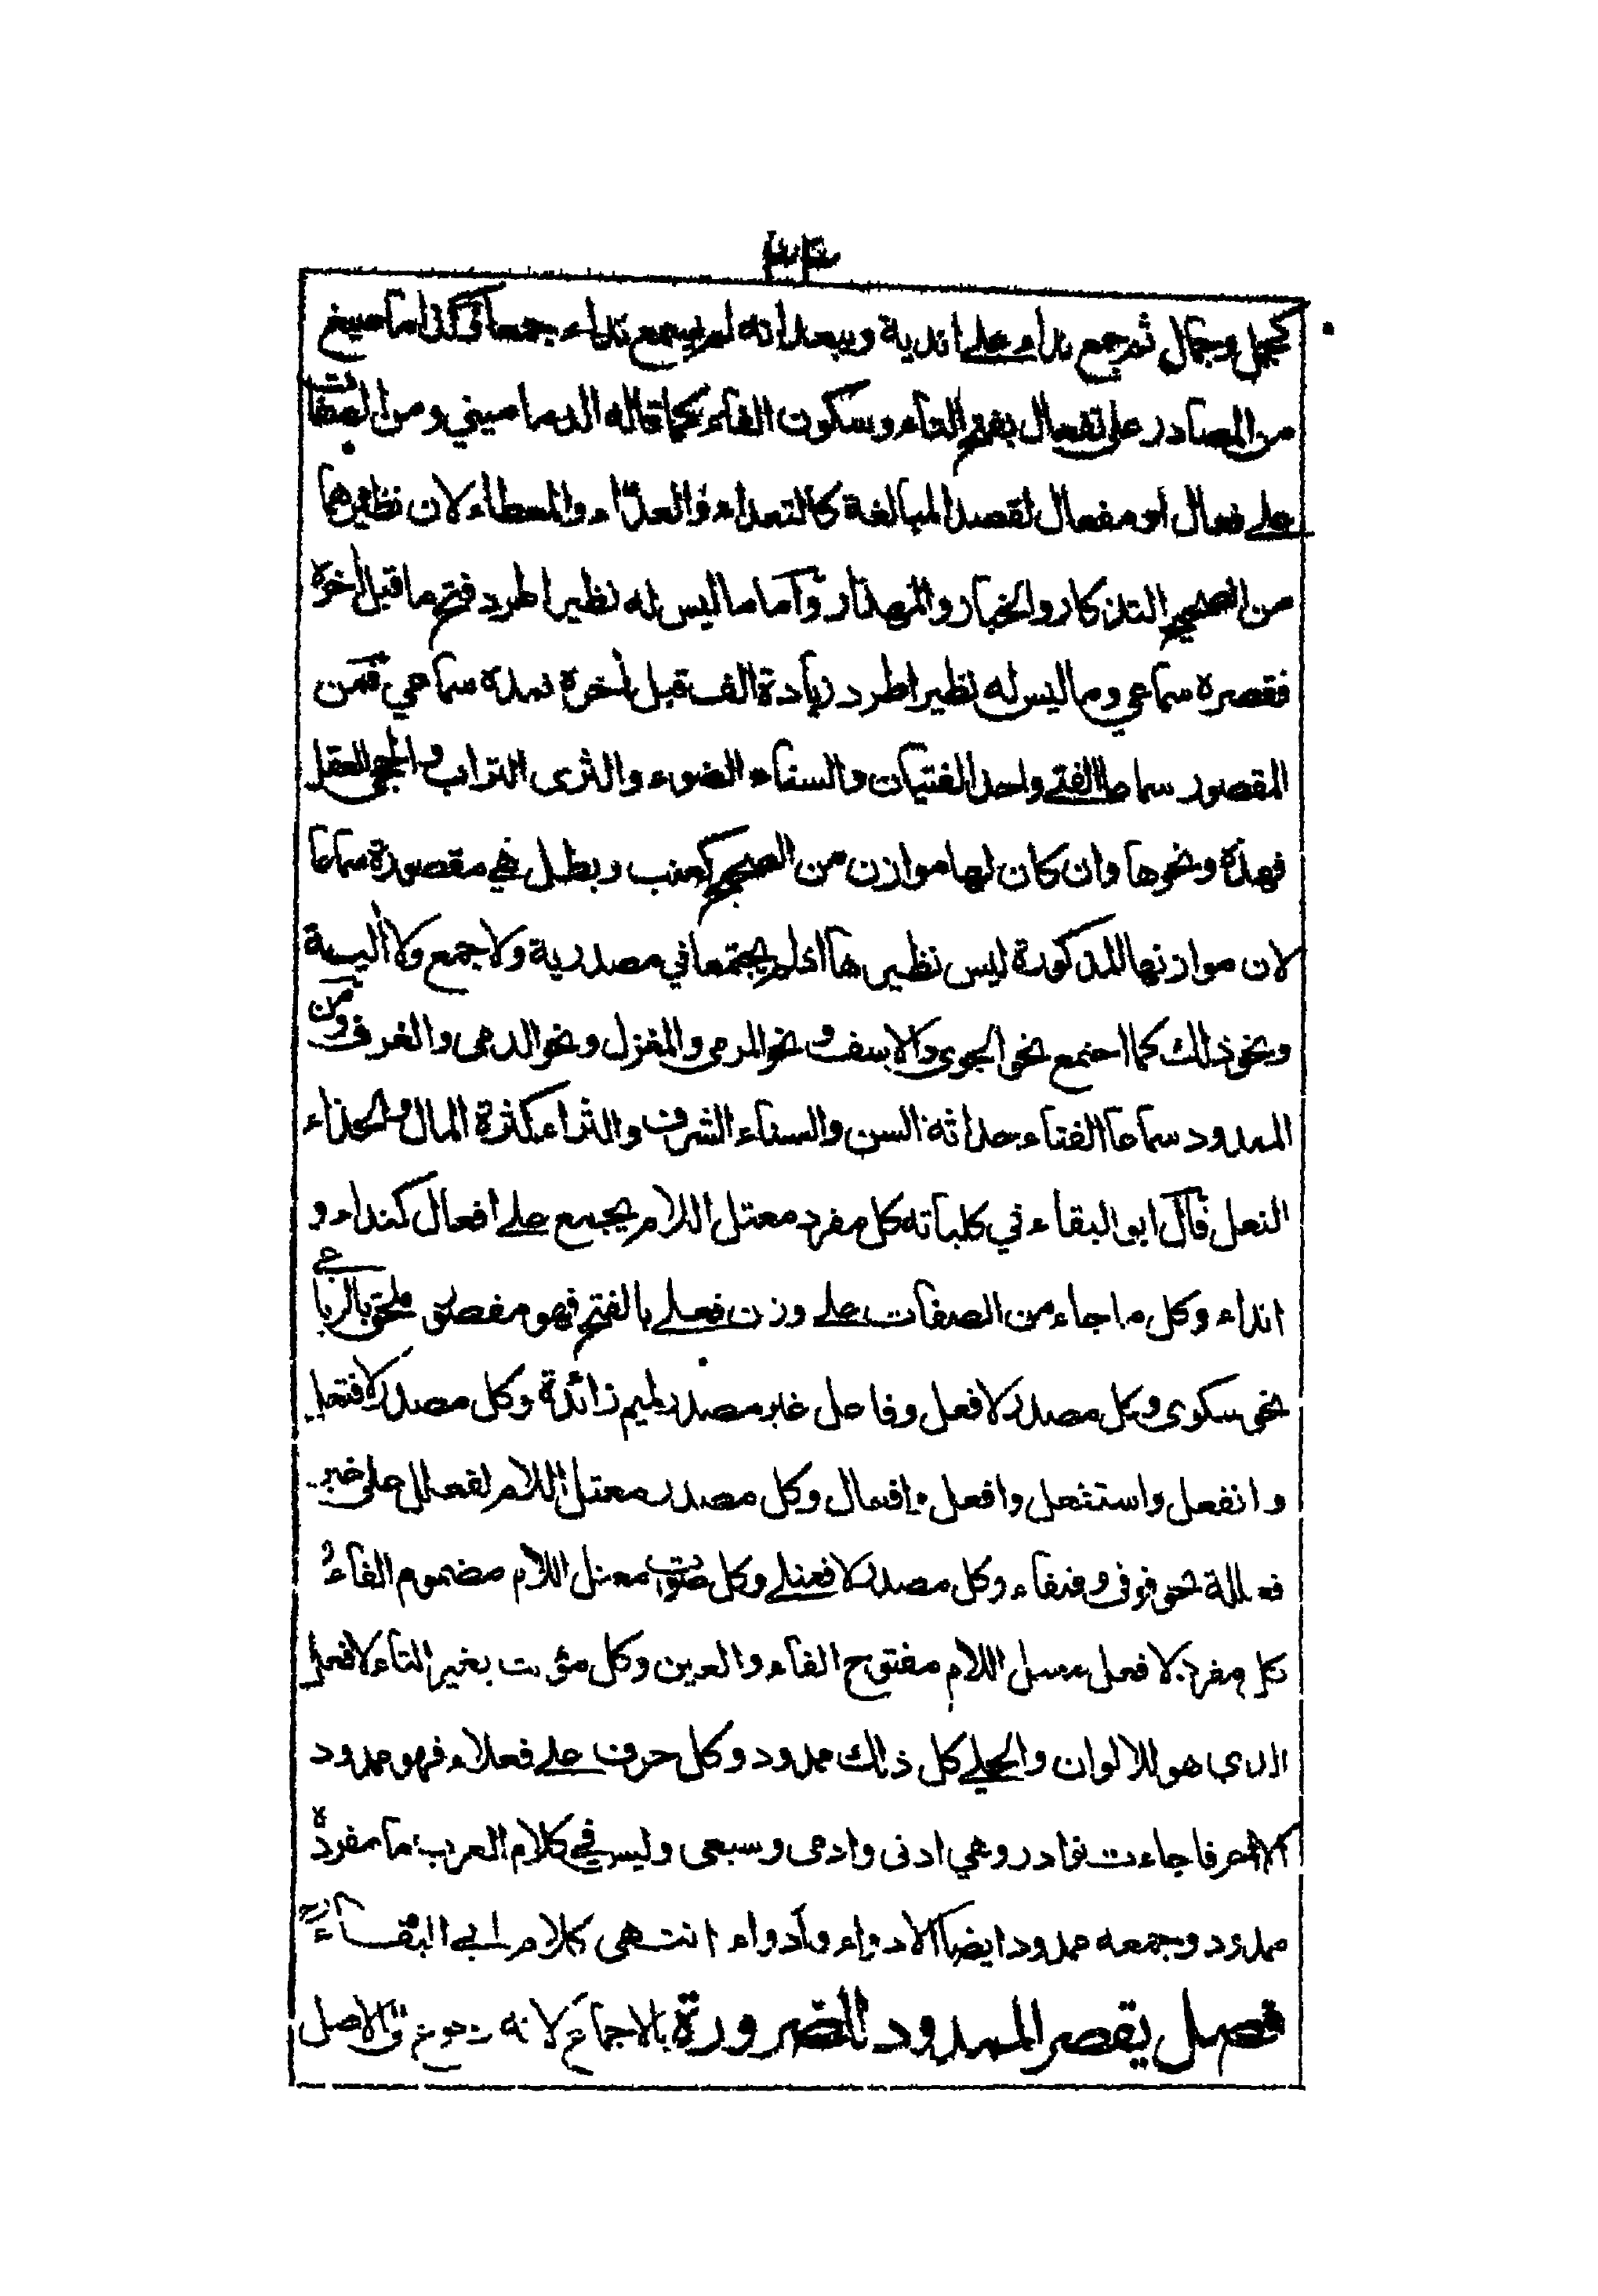 كجمل وجمال ثم جمع نداء على اندية ويبعده انه لم يسمع نداء جمعا وكذا ما صيغ
من المصادر على تفعال بفتح التاء وسكون الفاء كما قاله الدماميني ومن الصفات
على فعال او مفعال لقصد المبالغة كالتعداء والعدّاء والمعطاء لان نظيرها
من الصحيح التذكار والخباز والمهذار وآما ما ليس له نظير اطرد فتح ما قبل أخره
فقصره سماعي وما ليس له نظير اطرد زيادة الف قبل أخره فمده سماعي فمن
المقصور سماعا الفتى واحد الفتيان والسناء الضوء والثرى التراب والحجى العقل
فهذه ونحوها وان كان لها موازن من الصحيح كعنب وبطل فهي مقصورة سماعا
لان موازنها المذكورة ليس نظيرها اذ لم يجتمعا في مصدرية ولا جمع ولا ألية
ونحو ذلك كما اجتمع نحو الجوى والاسف ونحو المرمى والمغزل ونحو الدمى والغرف ومن
الممدود سماعا الفتاء حداثة السن والسناء الشرف والثراء كثرة المال والحذاء
النعل قال ابو البقاء في كلياته كل مفرد معتل اللام يجمع على افعال كنداء و
انداء وكل ما جاء من الصفات على وزن فعلى بالفتح فهو مقصور ملحق بالرباعي
نحو سكرى وكل مصدر لافعل وفاعل غير مصدر بميم زائدة وكل مصدر لافتعل
وانفعل واستفعل وافعل وافعال وكل مصدر معتل اللام لفعلل على خبر
فعللة نحو قوقى وقيقاء وكل مصدر لافعنلى وكل صوت معتل اللام مضموم الفاء و
كل مفرد لافعل معتل اللام مفتوح الفاء والعين وكل مؤنث بغير التاء لافعل
الذي هو للالوان والحلى كل ذلك ممدود وكل حرف على فعلاء فهو ممدود
الا احرفا جاءت نوادر وهي ادنى وادمى وسبعى وليس في كلام العرب ما مفرده
ممدود وجمعه ممدود ايضا الا دواء وأدواء انتهى كلام ابي البقاء رح
فصل يقصر الممدود للضرورة بالاجماع لانه رجوع الى الاصل